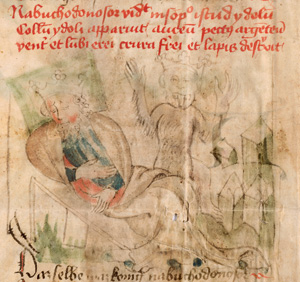 Nabuchodonosor vidt in sopo istud ydolu
Collu ydoli apparuit aureu pectq argeteu
vent et lubi erei crura frei et lapis destruit
nabuchodonosor